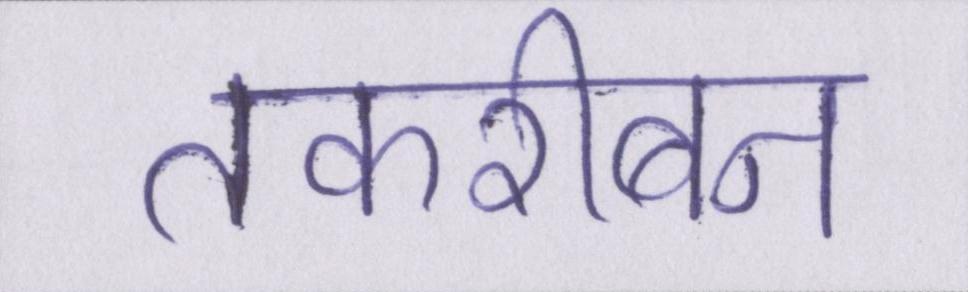 तकरीबन